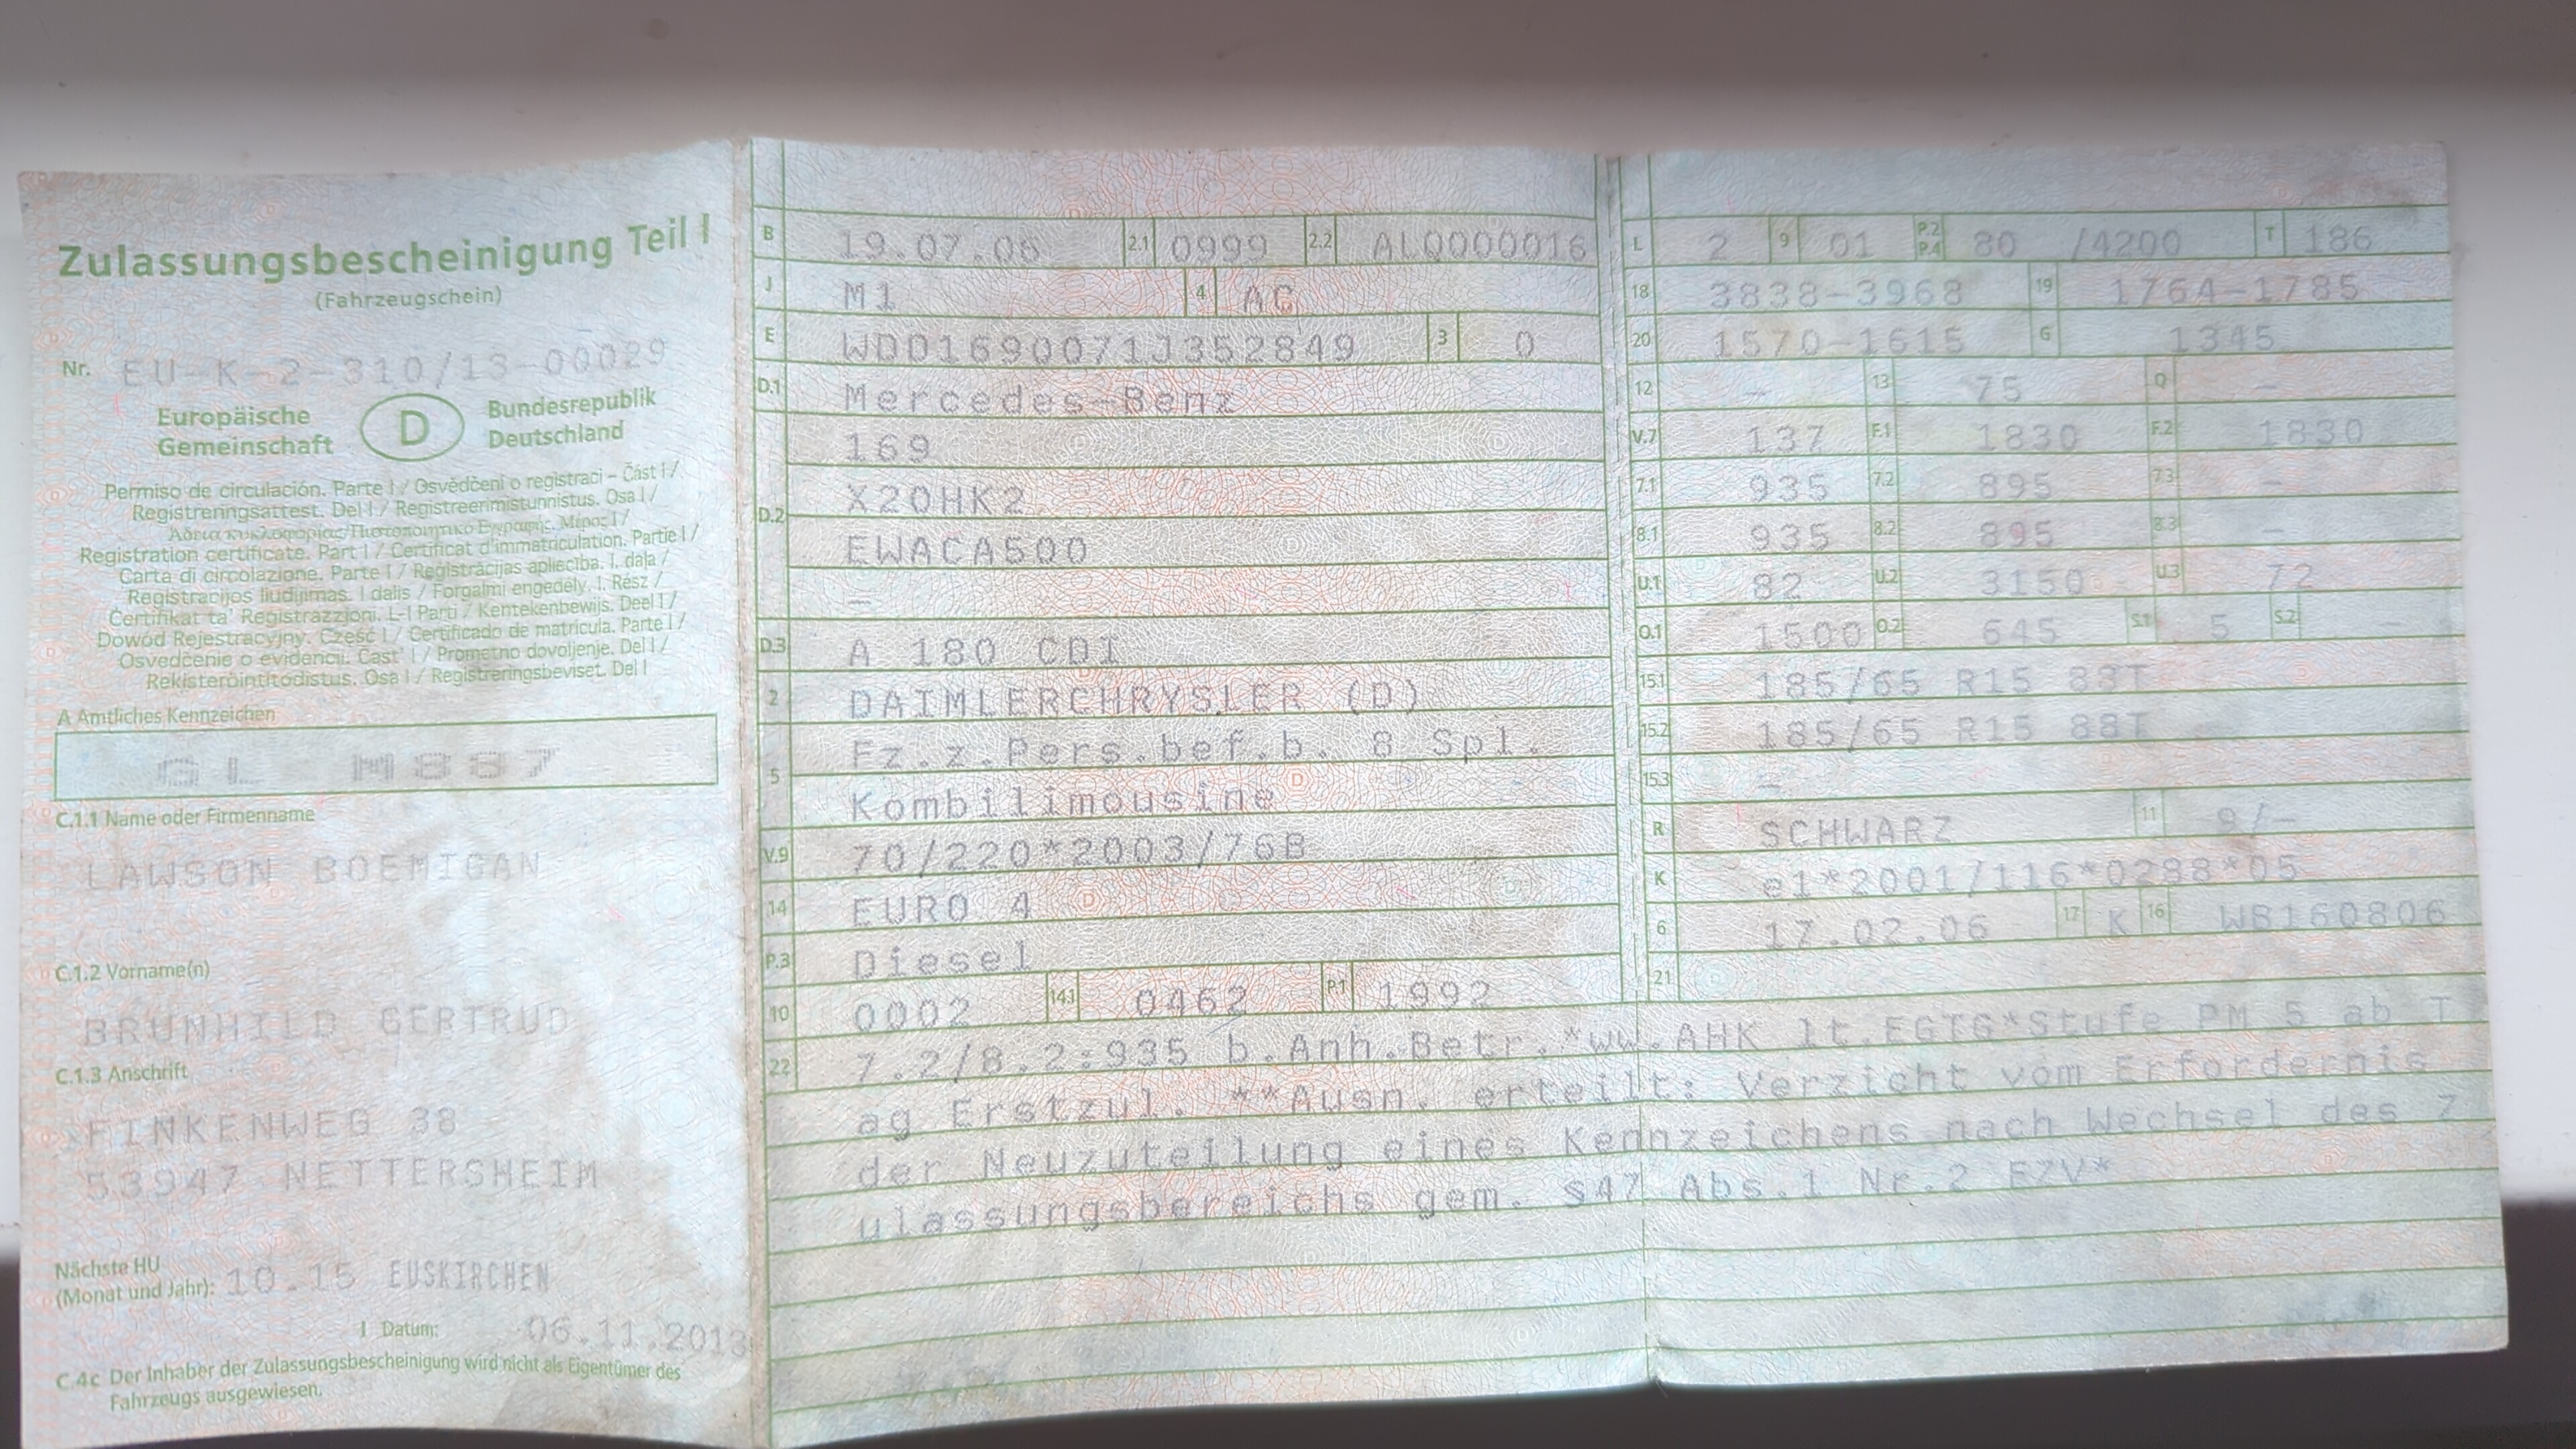 Zulassungsbescheinigung Teil I
(Fahrzeugschein)
Nr. EU-K-2-310/13-00029
Europäische Gemeinschaft
D
Bundesrepublik Deutschland
Permiso de circulación. Parte I / Osvědčení o registraci – Část I /
Registreringsattest. Del I / Registreerimistunnistus. Osa I /
Άδεια κυκλοφορίας/Πιστοποιητικό Εγγραφής. Μέρος I /
Registration certificate. Part I / Certificat d'immatriculation. Partie I /
Carta di circolazione. Parte I / Reģistrācijas apliecība. I. daļa /
Registracijos liudijimas. I dalis / Forgalmi engedély. I. Rész /
Ċertifikat ta' Reġistrazzjoni. L-I Parti / Kentekenbewijs. Deel I /
Dowód Rejestracyjny. Część I / Certificado de matrícula. Parte I /
Osvedčenie o evidencii. Časť I / Prometno dovoljenje. Del I /
Rekisteröintitodistus. Osa I / Registreringsbeviset. Del I
A Amtliches Kennzeichen
GL M887
C.1.1 Name oder Firmenname
LAWSON BOEMIGAN
C.1.2 Vorname(n)
BRUNHILD GERTRUD
C.1.3 Anschrift
FINKENWEG 38
53947 NETTERSHEIM
Nächste HU
(Monat und Jahr): 10.15 EUSKIRCHEN
I Datum: 06.11.2013
C.4c Der Inhaber der Zulassungsbescheinigung wird nicht als Eigentümer des
Fahrzeugs ausgewiesen.
B 19.07.06 2.1 0999 2.2 ALQ000016
J M1 4 AC
E WDD1690071J352849 3 0
D.1 Mercedes-Benz
169
D.2 X20HK2
EWACA500
–
D.3 A 180 CDI
2 DAIMLERCHRYSLER (D)
5 Fz.z.Pers.bef.b. 8 Spl.
Kombilimousine
V.9 70/220*2003/76B
14 EURO 4
P.3 Diesel
10 0002 14.1 0462 P.1 1992
L 2 9 01 P.2 P.4 80 /4200 T 186
18 3838-3968 19 1764-1785
20 1570-1615 G 1345
12 – 13 75 Q –
V.7 137 F.1 1830 F.2 1830
7.1 935 7.2 895 7.3 –
8.1 935 8.2 895 8.3 –
U.1 82 U.2 3150 U.3 72
O.1 1500 O.2 645 S.1 5 S.2 –
15.1 185/65 R15 88T
15.2 185/65 R15 88T
15.3 –
R SCHWARZ 11 9/–
K e1*2001/116*0288*05
6 17.02.06 17 K 16 WB160806
21
22 7.2/8.2:935 b.Anh.Betr.*ww.AHK lt.EGTG*Stufe PM 5 ab T
ag Erstzul. **Ausn. erteilt: Verzicht vom Erfordernis
der Neuzuteilung eines Kennzeichens nach Wechsel des Z
ulassungsbereichs gem. §47 Abs.1 Nr.2 FZV*